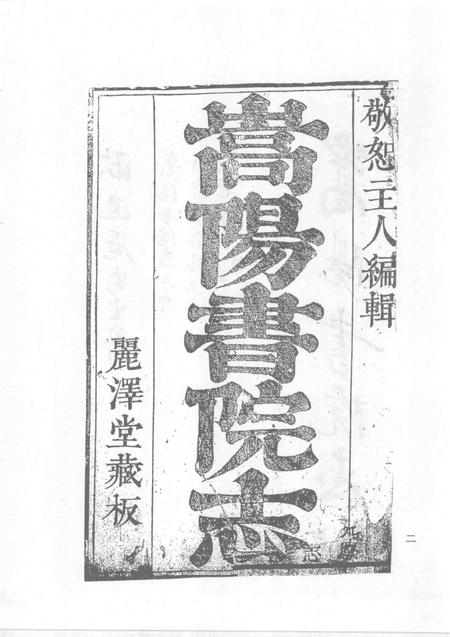 敬恕主人編輯
嵩陽書院志
麗澤堂藏板
志
二